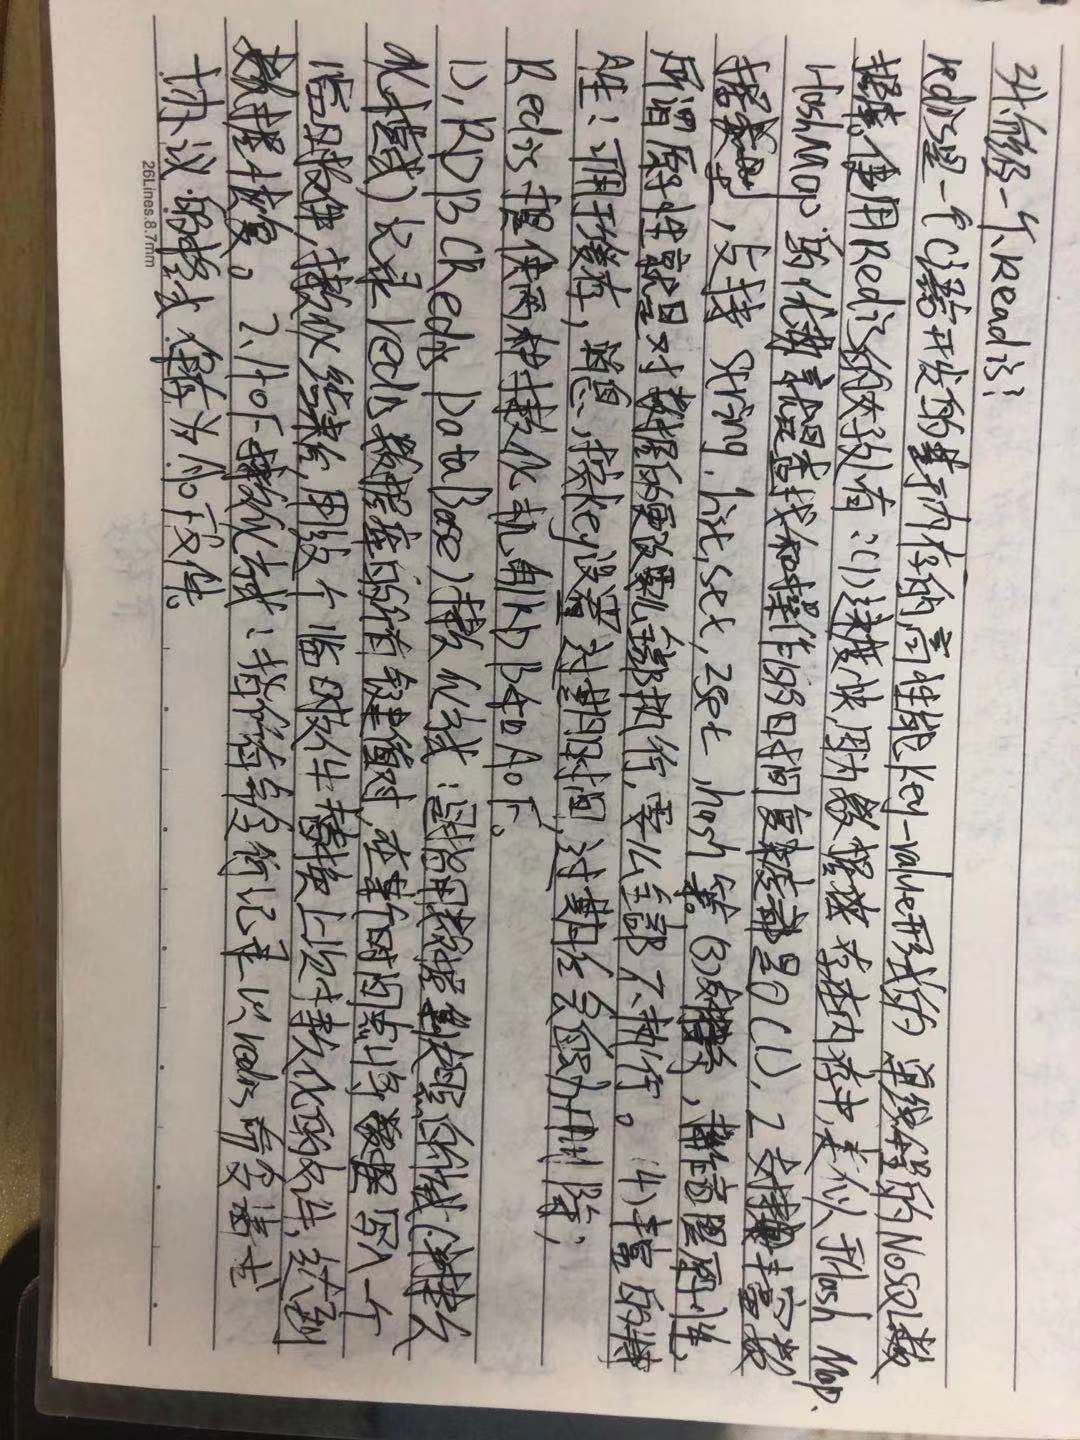 介绍一下Readis:
Redis是一个C语言开发的基于内存的高性能key-value形式的单线程的NoSQL数
据库。使用Redis的好处有:(1)速度快,因为数据存在内存中,类似于Hash Map.
HashMap的优势就是查找和操作的时间复杂度都是O(1), 2支持丰富数
据类型,支持String, list, set, zset, hash等。(3)支持事务,操作都是原子性,
所谓原子性就是对数据的更改要么全部执行,要么全部不执行。(4)丰富的特
性:可用于缓存,消息,按key设置过期时间,过期后会自动删除;
Redis提供两种持久化机制RDB和AOF。
1), RDB(Redis DataBase)持久化方式:是指用数据集快照的方式(半持久
化模式)记录redis数据库的所有键值对,在某个时间点将数据写入一个
临时文件,持久化结束后,用这个临时文件替换上次持久化的文件,达到
数据恢复。 2.AOF持久化方式:指所有的命令行记录以redis命令请求
协议的格式保存为AOF文件。
26Lines.8.7mm